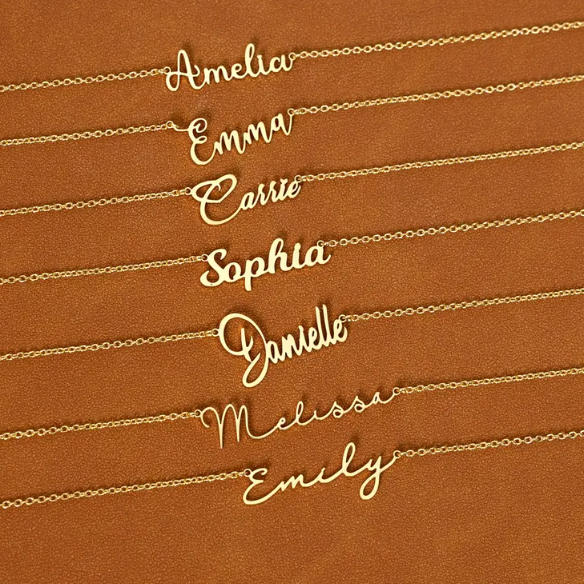 Amelia
Emma
Carrie
Sophia
Danielle
Melissa
Emily